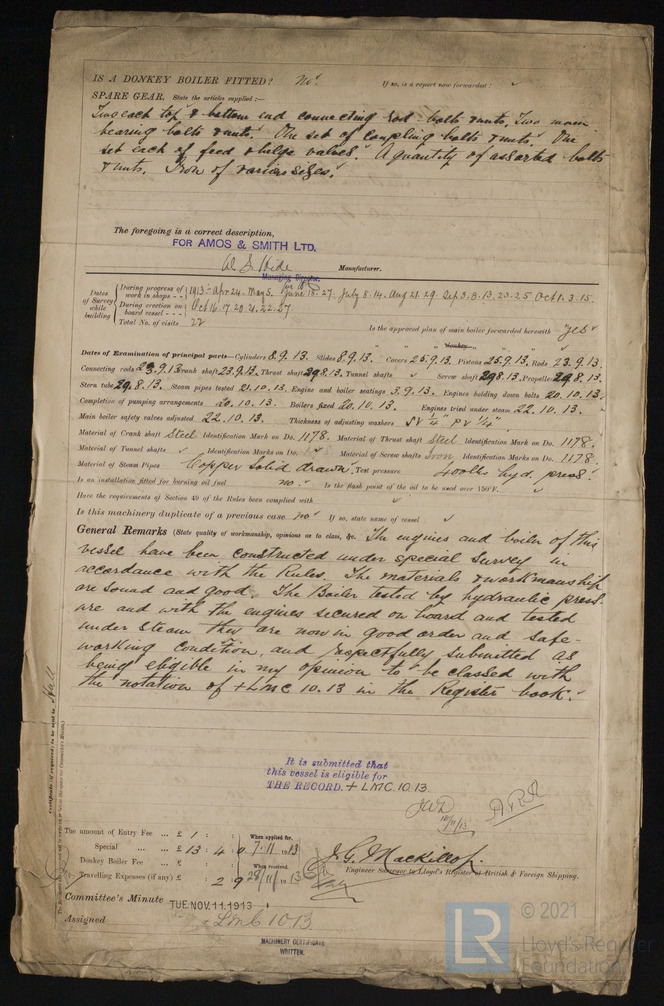 IS A DONKEY BOILER FITTED? No. If so, is a report now forwarded?
SPARE GEAR. State the articles supplied:—
Two each top & bottom end connecting rod bolts & nuts, Two main
bearing bolts & nuts. One set of coupling bolts & nuts. One
set each of feed & bilge valves. A quantity of assorted bolts
& nuts. Iron of various sizes.
The foregoing is a correct description,
FOR AMOS & SMITH LTD.
Manufacturer.
Managing Director.
Dates of Survey while building
During progress of work in shops -- 1913:- Apr 24. May 5. June 18. 27. July 8. 14. Aug 21. 29. Sep 3. 8. 13. 23. 25. Oct 1. 3. 15.
During erection on board vessel --- Oct 16. 17. 20. 21. 22. 27.
Total No. of visits 22
Is the approved plan of main boiler forwarded herewith Yes
Dates of Examination of principal parts—Cylinders 8.9.13. Slides 8.9.13. Covers 25.9.13. Pistons 25.9.13. Rods 23.9.13.
Connecting rods 23.9.13. Crank shaft 23.9.13. Thrust shaft 29.8.13. Tunnel shafts Screw shaft 29.8.13. Propeller 29.8.13.
Stern tube 29.8.13. Steam pipes tested 21.10.13. Engine and boiler seatings 3.9.13. Engines holding down bolts 20.10.13.
Completion of pumping arrangements 20.10.13. Boilers fixed 20.10.13. Engines tried under steam 22.10.13.
Main boiler safety valves adjusted 22.10.13. Thickness of adjusting washers SV 1/4" PV 1/4"
Material of Crank shaft Steel Identification Mark on Do. 1178. Material of Thrust shaft Steel Identification Mark on Do. 1178.
Material of Tunnel shafts Identification Marks on Do. Material of Screw shafts Iron Identification Marks on Do. 1178
Material of Steam Pipes Copper solid drawn. Test pressure 400 lbs hyd. press.
Is an installation fitted for burning oil fuel no. Is the flash point of the oil to be used over 150°F.
Have the requirements of Section 49 of the Rules been complied with
Is this machinery duplicate of a previous case no If so, state name of vessel
General Remarks (State quality of workmanship, opinions as to class, &c. The engines and boiler of this
vessel have been constructed under special Survey in
accordance with the Rules. The materials & workmanship
are sound and good. The Boiler tested by hydraulic press-
ure and with the engines secured on board and tested
under steam they are now in good order and safe-
working condition, and respectfully submitted as
being eligible in my opinion to be classed with
the notation of +LMC 10.13 in the Register book.
It is submitted that
this vessel is eligible for
THE RECORD. + LMC. 10.13.
The amount of Entry Fee ... £ 1 : When applied for,
Special ... £ 13 : 4 : 0 7.11.1913
Donkey Boiler Fee ... £ When received,
Travelling Expenses (if any) £ 2 9 28/11/1913
J.G. Mackillop.
Engineer Surveyor to Lloyd's Register of British & Foreign Shipping.
Committee's Minute TUE. NOV. 11. 1913
Assigned + LMC 10.13
MACHINERY CERTIFICATE
WRITTEN.
Certificate (if required) to be sent to Hull
LR © 2021
Lloyd's Register
Foundation